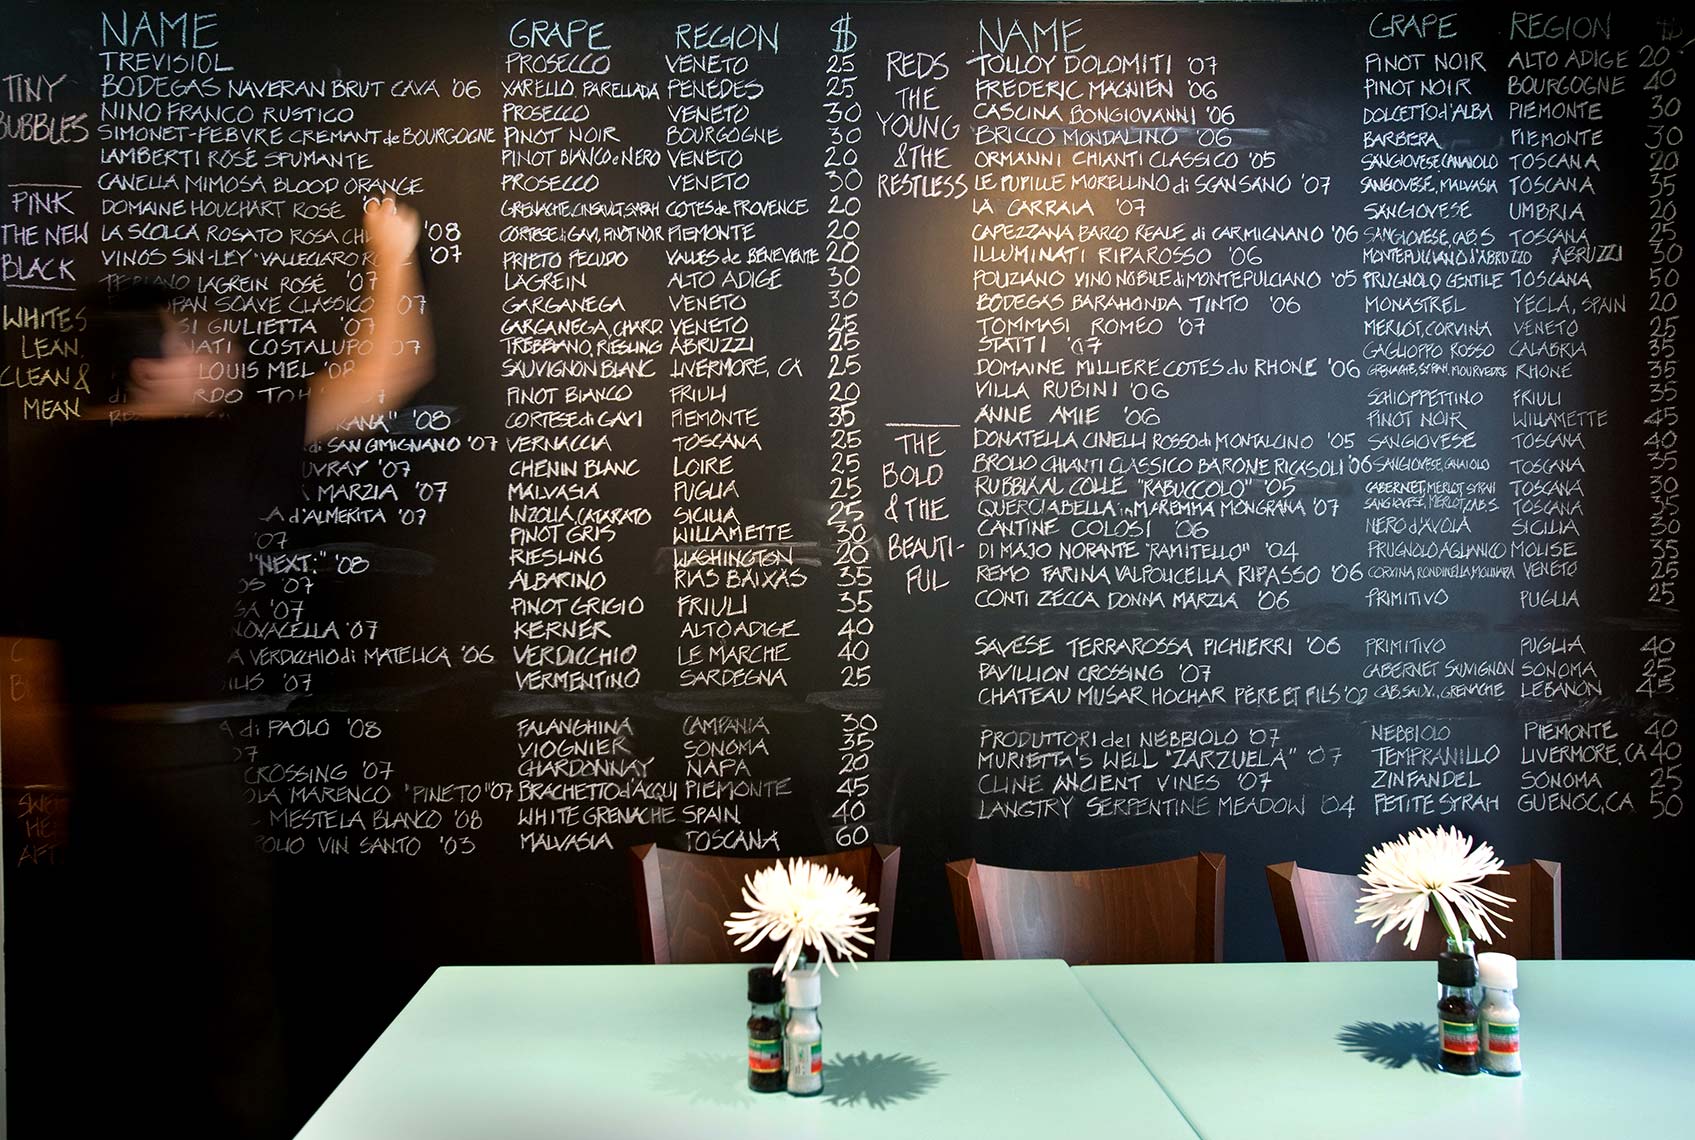 NAME GRAPE REGION $
TINY BUBBLES
TREVISIOL PROSECCO VENETO 25
BODEGAS NAVERAN BRUT CAVA '06 XARELLO, PARELLADA PENEDES 25
NINO FRANCO RUSTICO PROSECCO VENETO 30
SIMONET-FEBVRE CREMANT de BOURGOGNE PINOT NOIR BOURGOGNE 30
LAMBERTI ROSÉ SPUMANTE PINOT BIANCO e NERO VENETO 20
CANELLA MIMOSA BLOOD ORANGE PROSECCO VENETO 30
PINK THE NEW BLACK
DOMAINE HOUCHART ROSE GRENACHE, CINSAULT, SYRAH COTES de PROVENCE 20
LA SCOLCA ROSATO ROSA '08 CORTESE di GAVI, PINOT NOIR PIEMONTE 20
VINOS SIN-LEY "VALLECLARO '07 PRIETO PECUDO VALLES de BENEVENTE 20
LAGREIN ROSÉ '07 LAGREIN ALTO ADIGE 30
WHITES LEAN, CLEAN & MEAN
SOAVE CLASSICO 07 GARGANEGA VENETO 30
GIULIETTA '07 GARGANEGA, CHARD. VENETO 25
COSTALUPO 07 TREBBIANO, RIESLING ABRUZZI 25
LOUIS MEL SAUVIGNON BLANC LIVERMORE, CA 25
PINOT BIANCO FRIULI 20
'08 CORTESE di GAVI PIEMONTE 35
di SAN GIMIGNANO '07 VERNACCIA TOSCANA 25
'07 CHENIN BLANC LOIRE 25
MARZIA '07 MALVASIA PUGLIA 25
d'ALMERITA '07 INZOLIA, CATARATO SICILIA 25
'07 PINOT GRIS WILLAMETTE 30
"NEXT:" '08 RIESLING WASHINGTON 20
'07 ALBARINO RIAS BAIXAS 35
'07 PINOT GRIGIO FRIULI 35
'07 KERNER ALTO ADIGE 40
VERDICCHIO di MATELICA '06 VERDICCHIO LE MARCHE 40
'07 VERMENTINO SARDEGNA 25
di PAOLO '08 FALANGHINA CAMPANIA 30
VIOGNIER SONOMA 35
CROSSING '07 CHARDONNAY NAPA 20
MARENCO "PINETO" '07 BRACHETTO d'ACQUI PIEMONTE 45
MESTELA BLANCO '08 WHITE GRENACHE SPAIN 40
VIN SANTO '03 MALVASIA TOSCANA 60
NAME GRAPE REGION $
REDS THE YOUNG & THE RESTLESS
TOLLOY DOLOMITI '07 PINOT NOIR ALTO ADIGE 20
FREDERIC MAGNIEN '06 PINOT NOIR BOURGOGNE 40
CASCINA BONGIOVANNI '06 DOLCETTO d'ALBA PIEMONTE 30
BRICCO MONDALINO '06 BARBERA PIEMONTE 30
ORMANNI CHIANTI CLASSICO '05 SANGIOVESE, CANAIOLO TOSCANA 20
LE PUPILLE MORELLINO di SCANSANO '07 SANGIOVESE, MALVASIA TOSCANA 35
LA CARRAIA '07 SANGIOVESE UMBRIA 20
CAPEZZANA BARCO REALE di CARMIGNANO '06 SANGIOVESE, CAB S TOSCANA 25
ILLUMINATI RIPAROSSO '06 MONTEPULCIANO d'ABRUZZO ABRUZZI 30
POLIZIANO VINO NOBILE di MONTEPULCIANO '05 PRUGNOLO GENTILE TOSCANA 50
BODEGAS BARAHONDA TINTO '06 MONASTREL YECLA, SPAIN 20
TOMMASI ROMEO '07 MERLOT, CORVINA VENETO 25
STATTI '07 GAGLIOPPO ROSSO CALABRIA 35
DOMAINE MILLIERE COTES du RHONE '06 GRENACHE, SYRAH, MOURVEDRE RHONE 35
VILLA RUBINI '06 SCHIOPPETTINO FRIULI 35
ANNE AMIE '06 PINOT NOIR WILLAMETTE 45
THE BOLD & THE BEAUTI-FUL
DONATELLA CINELLI ROSSO di MONTALCINO '05 SANGIOVESE TOSCANA 40
BROLIO CHIANTI CLASSICO BARONE RICASOLI '06 SANGIOVESE, CANAIOLO TOSCANA 35
RUBBIA AL COLLE "RABUCCOLO" '05 CABERNET, MERLOT, SYRAH TOSCANA 30
QUERCIABELLA in MAREMMA MONGRANA '07 SANGIOVESE, MERLOT, CAB S. TOSCANA 35
CANTINE COLOSI '06 NERO d'AVOLA SICILIA 30
DI MAJO NORANTE "RAMITELLO" '04 PRUGNOLO AGLIANICO MOLISE 35
REMO FARINA VALPOLICELLA RIPASSO '06 CORVINA, RONDINELLA, MOLINARA VENETO 25
CONTI ZECCA DONNA MARZIA '06 PRIMITIVO PUGLIA 25
SAVESE TERRAROSSA PICHIERRI '06 PRIMITIVO PUGLIA 40
PAVILLION CROSSING '07 CABERNET SUVIGNON SONOMA 25
CHATEAU MUSAR HOCHAR PÈRE ET FILS '02 CAB SAUV., GRENACHE LEBANON 45
PRODUTTORI del NEBBIOLO '07 NEBBIOLO PIEMONTE 40
MURIETTA'S WELL "ZARZUELA" '07 TEMPRANILLO LIVERMORE, CA 40
CLINE ANCIENT VINES '07 ZINFANDEL SONOMA 25
LANGTRY SERPENTINE MEADOW '04 PETITE SYRAH GUENOC, CA 50